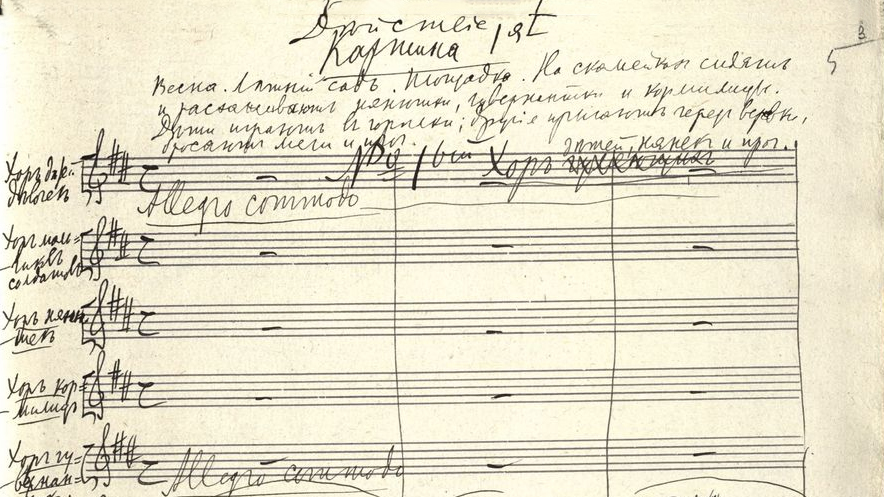 Дѣйствіе 1е
Картина 1я
3
5
Весна. Лѣтній садъ. Площадка. На скамейкахъ сидятъ
и расхаживаютъ нянюшки, гувернантки и кормилицы.
Дѣти играютъ въ горѣлки; другіе прыгаютъ черезъ веревки,
бросаютъ мячи и проч.
№ 1ый Хоръ дѣтей, нянекъ и проч.
Allegro commodo
Хоръ дѣ-
вочекъ
Хоръ маль-
чиковъ
солдатовъ
Хоръ няню-
шекъ
Хоръ кор-
милицъ
Хоръ гу-
вернан-
Allegro commodo